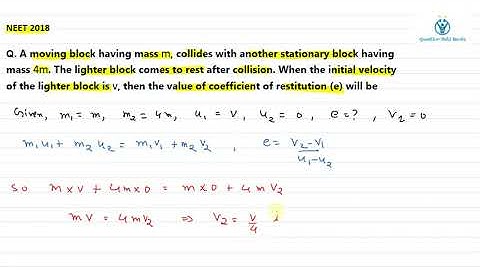 NEET 2018
Q. A moving block having mass m, collides with another stationary block having
mass 4m. The lighter block comes to rest after collision. When the initial velocity
of the lighter block is v, then the value of coefficient of restitution (e) will be
Given, m₁ = m, m₂ = 4m, u₁ = v, u₂ = 0, e = ?, v₂ = 0
m₁u₁ + m₂u₂ = m₁v₁ + m₂v₂, e = v₂-v₁/u₁-u₂
so m×v + 4m×0 = m×0 + 4mv₂
mv = 4mv₂ ⇒ v₂ = v/4